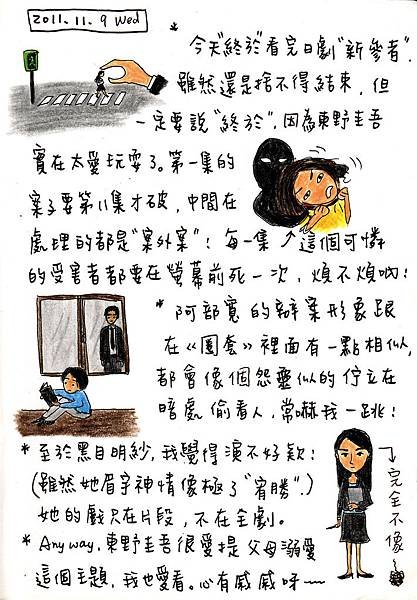 2011.11.9 Wed
* 今天"終於"看完日劇"新參者",
雖然還是捨不得結束,但
一定要說"終於",因為東野圭吾
實在太愛玩耍了。第一集的
案子要第11集才破,中間在
處理的都是"案外案"!每一集 ↑這個可憐
的受害者都要在螢幕前死一次,煩不煩哋!
* 阿部寬的辦案形象跟
在《圈套》裡面有一點相似,
都會像個怨靈似的佇立在
暗處偷看人,常嚇我一跳!
* 至於黑目明紗,我覺得演不好欸!
(雖然她眉宇神情像極了"宥勝".)
她的戲只在片段,不在主劇。
↓完全不像
* Anyway,東野圭吾很愛提父母溺愛
這個主題,我也愛看。心有戚戚呀~~